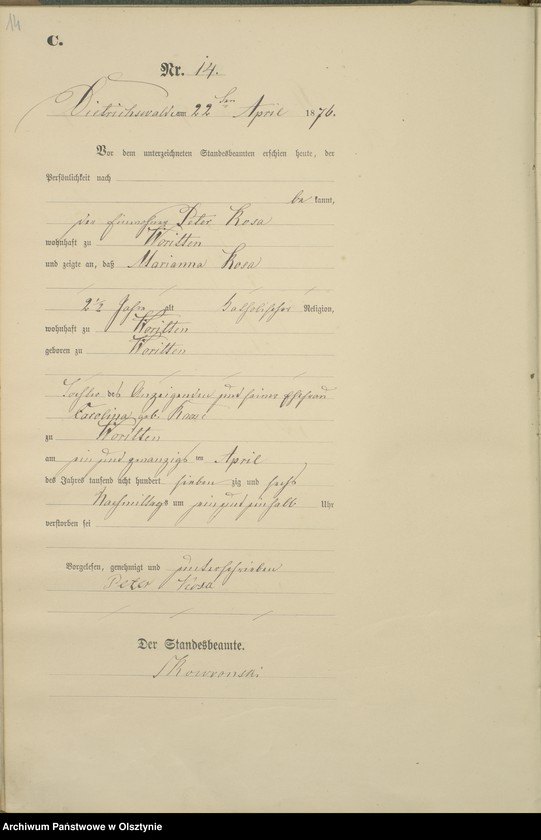 14
C.
Nr. 14.
Dietrichswald am 22ten April 1876.
Vor dem unterzeichneten Standesbeamten erschien heute, der
Persönlichkeit nach
be kannt,
der Peter Rosa
wohnhaft zu Woritten
und zeigte an, daß Marianna Rosa
2 1/2 Jahre alt katholischer Religion,
wohnhaft zu Woritten
geboren zu Woritten
Tochter des Anzeigenden und seiner Ehefrau
Carolina geb.
zu Woritten
am ein und zwanzigs ten April
des Jahres tausend acht hundert sieben zig und sechs
Nachmittags um ein und einhalb Uhr
verstorben sei
Vorgelesen, genehmigt und unterschrieben
Peter Rosa
Der Standesbeamte.
Skowronski
Archiwum Państwowe w Olsztynie